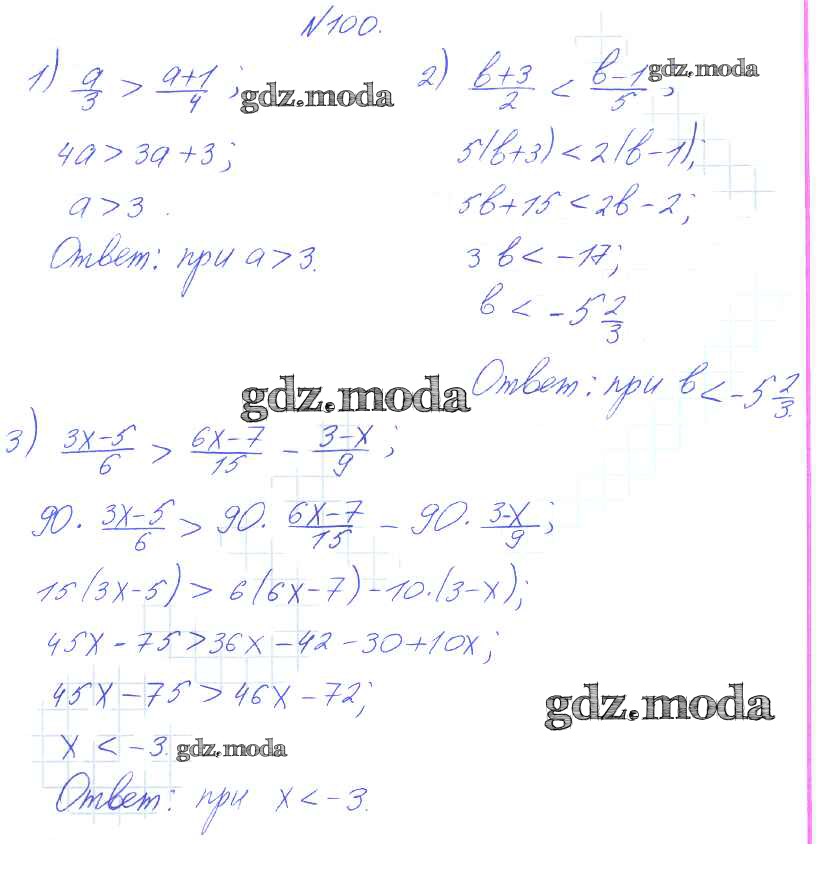 №100.
1) a/3 > (a+1)/4 ;
gdz.moda
4a > 3a + 3 ;
a > 3 .
Ответ: при a > 3.
2) (b+3)/2 < (b-1)/5 ;
gdz.moda
5(b+3) < 2(b-1);
5b+15 < 2b-2;
3b < -17;
b < -5 2/3
Ответ: при b < -5 2/3.
gdz.moda
3) (3x-5)/6 > (6x-7)/15 - (3-x)/9 ;
90 · (3x-5)/6 > 90 · (6x-7)/15 - 90 · (3-x)/9 ;
15(3x-5) > 6(6x-7) - 10·(3-x);
45x - 75 > 36x - 42 - 30 + 10x;
45x - 75 > 46x - 72;
gdz.moda
x < -3.
gdz.moda
Ответ: при x < -3.